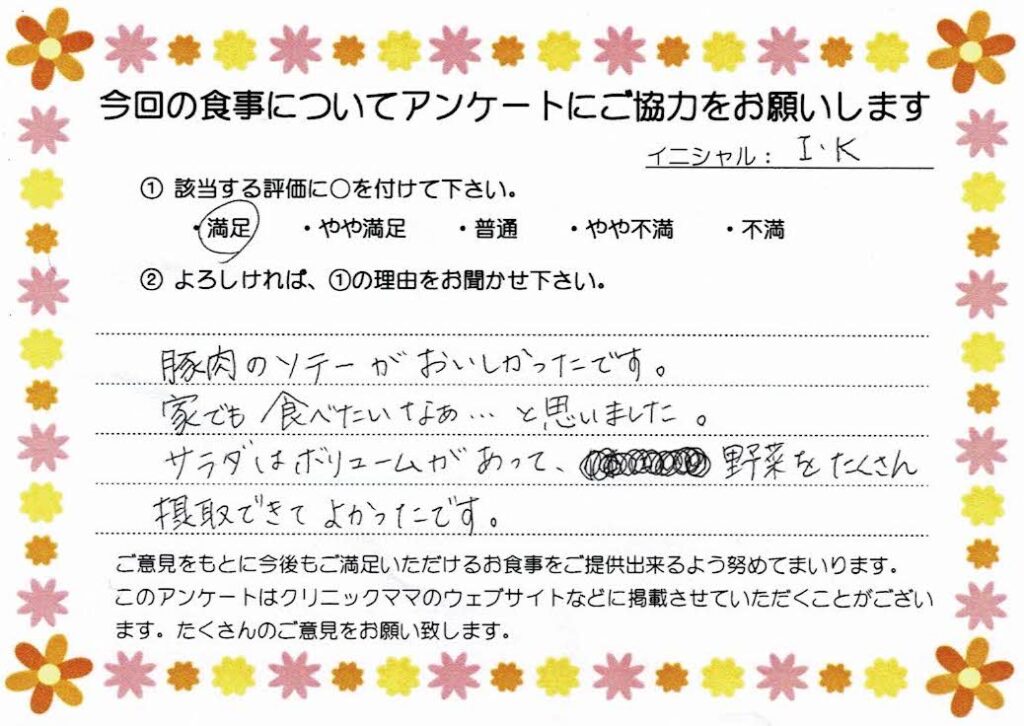 今回の食事についてアンケートにご協力をお願いします
イニシャル： I・K
① 該当する評価に○を付けて下さい。
・満足 ・やや満足 ・普通 ・やや不満 ・不満
② よろしければ、①の理由をお聞かせ下さい。
豚肉のソテーがおいしかったです。
家でも食べたいなぁ…と思いました。
サラダはボリュームがあって、野菜をたくさん
摂取できてよかったです。
ご意見をもとに今後もご満足いただけるお食事をご提供出来るよう努めてまいります。
このアンケートはクリニックママのウェブサイトなどに掲載させていただくことがござい
ます。たくさんのご意見をお願い致します。